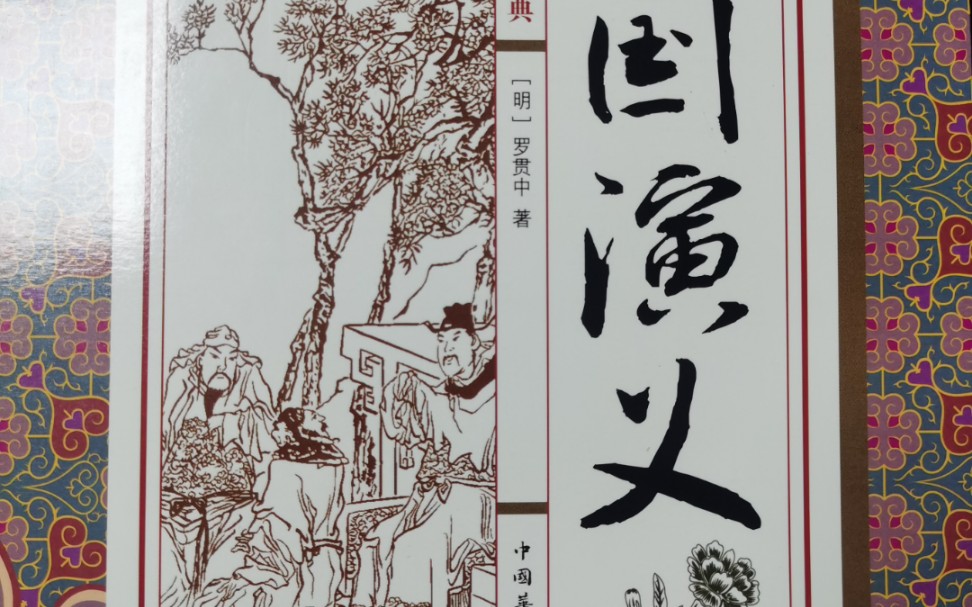 国演义
典
[明] 罗贯中 著
中國